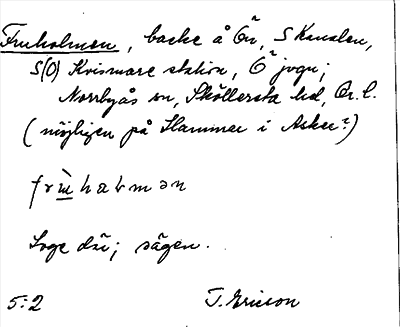 Fruholmen, backe å Ön, S Kanalen,
S(O) Kvismare station, Ö jogn;
Norrbyås sn, Sköllersta hd, Ör. l.
(möjligen på Hammar i Asker?)
Loge där; sägen.
5:2 T. Ericson